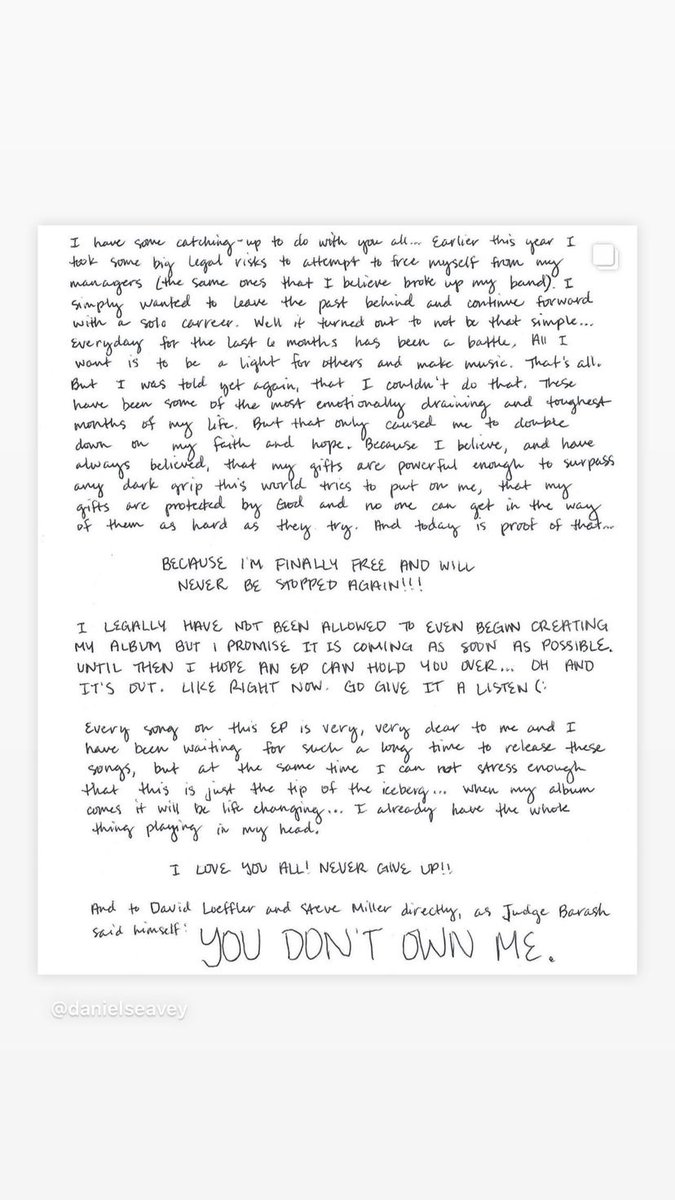 I have some catching-up to do with you all... Earlier this year I
took some big legal risks to attempt to free myself from my
managers (the same ones that I believe broke up my band). I
simply wanted to leave the past behind and continue forward
with a solo carreer. Well it turned out to not be that simple...
Everyday for the last 6 months has been a battle. All I
want is to be a light for others and make music. That's all.
But I was told yet again, that I couldn't do that. These
have been some of the most emotionally draining and toughest
months of my life. But that only caused me to double
down on my faith and hope. Because I believe, and have
always believed, that my gifts are powerful enough to surpass
any dark grip this world tries to put on me, that my
gifts are protected by God and no one can get in the way
of them as hard as they try. And today is proof of that...
BECAUSE I'M FINALLY FREE AND WILL
NEVER BE STOPPED AGAIN!!!
I LEGALLY HAVE NOT BEEN ALLOWED TO EVEN BEGIN CREATING
MY ALBUM BUT I PROMISE IT IS COMING AS SOON AS POSSIBLE.
UNTIL THEN I HOPE AN EP CAN HOLD YOU OVER... OH AND
IT'S OUT. LIKE RIGHT NOW. GO GIVE IT A LISTEN (:
Every song on this EP is very, very dear to me and I
have been waiting for such a long time to release these
songs, but at the same time I can not stress enough
that this is just the tip of the iceberg... when my album
comes it will be life changing... I already have the whole
thing playing in my head.
I LOVE YOU ALL! NEVER GIVE UP!!
And to David Loeffler and Steve Miller directly, as Judge Barash
said himself: YOU DON'T OWN ME.
@danielseavey